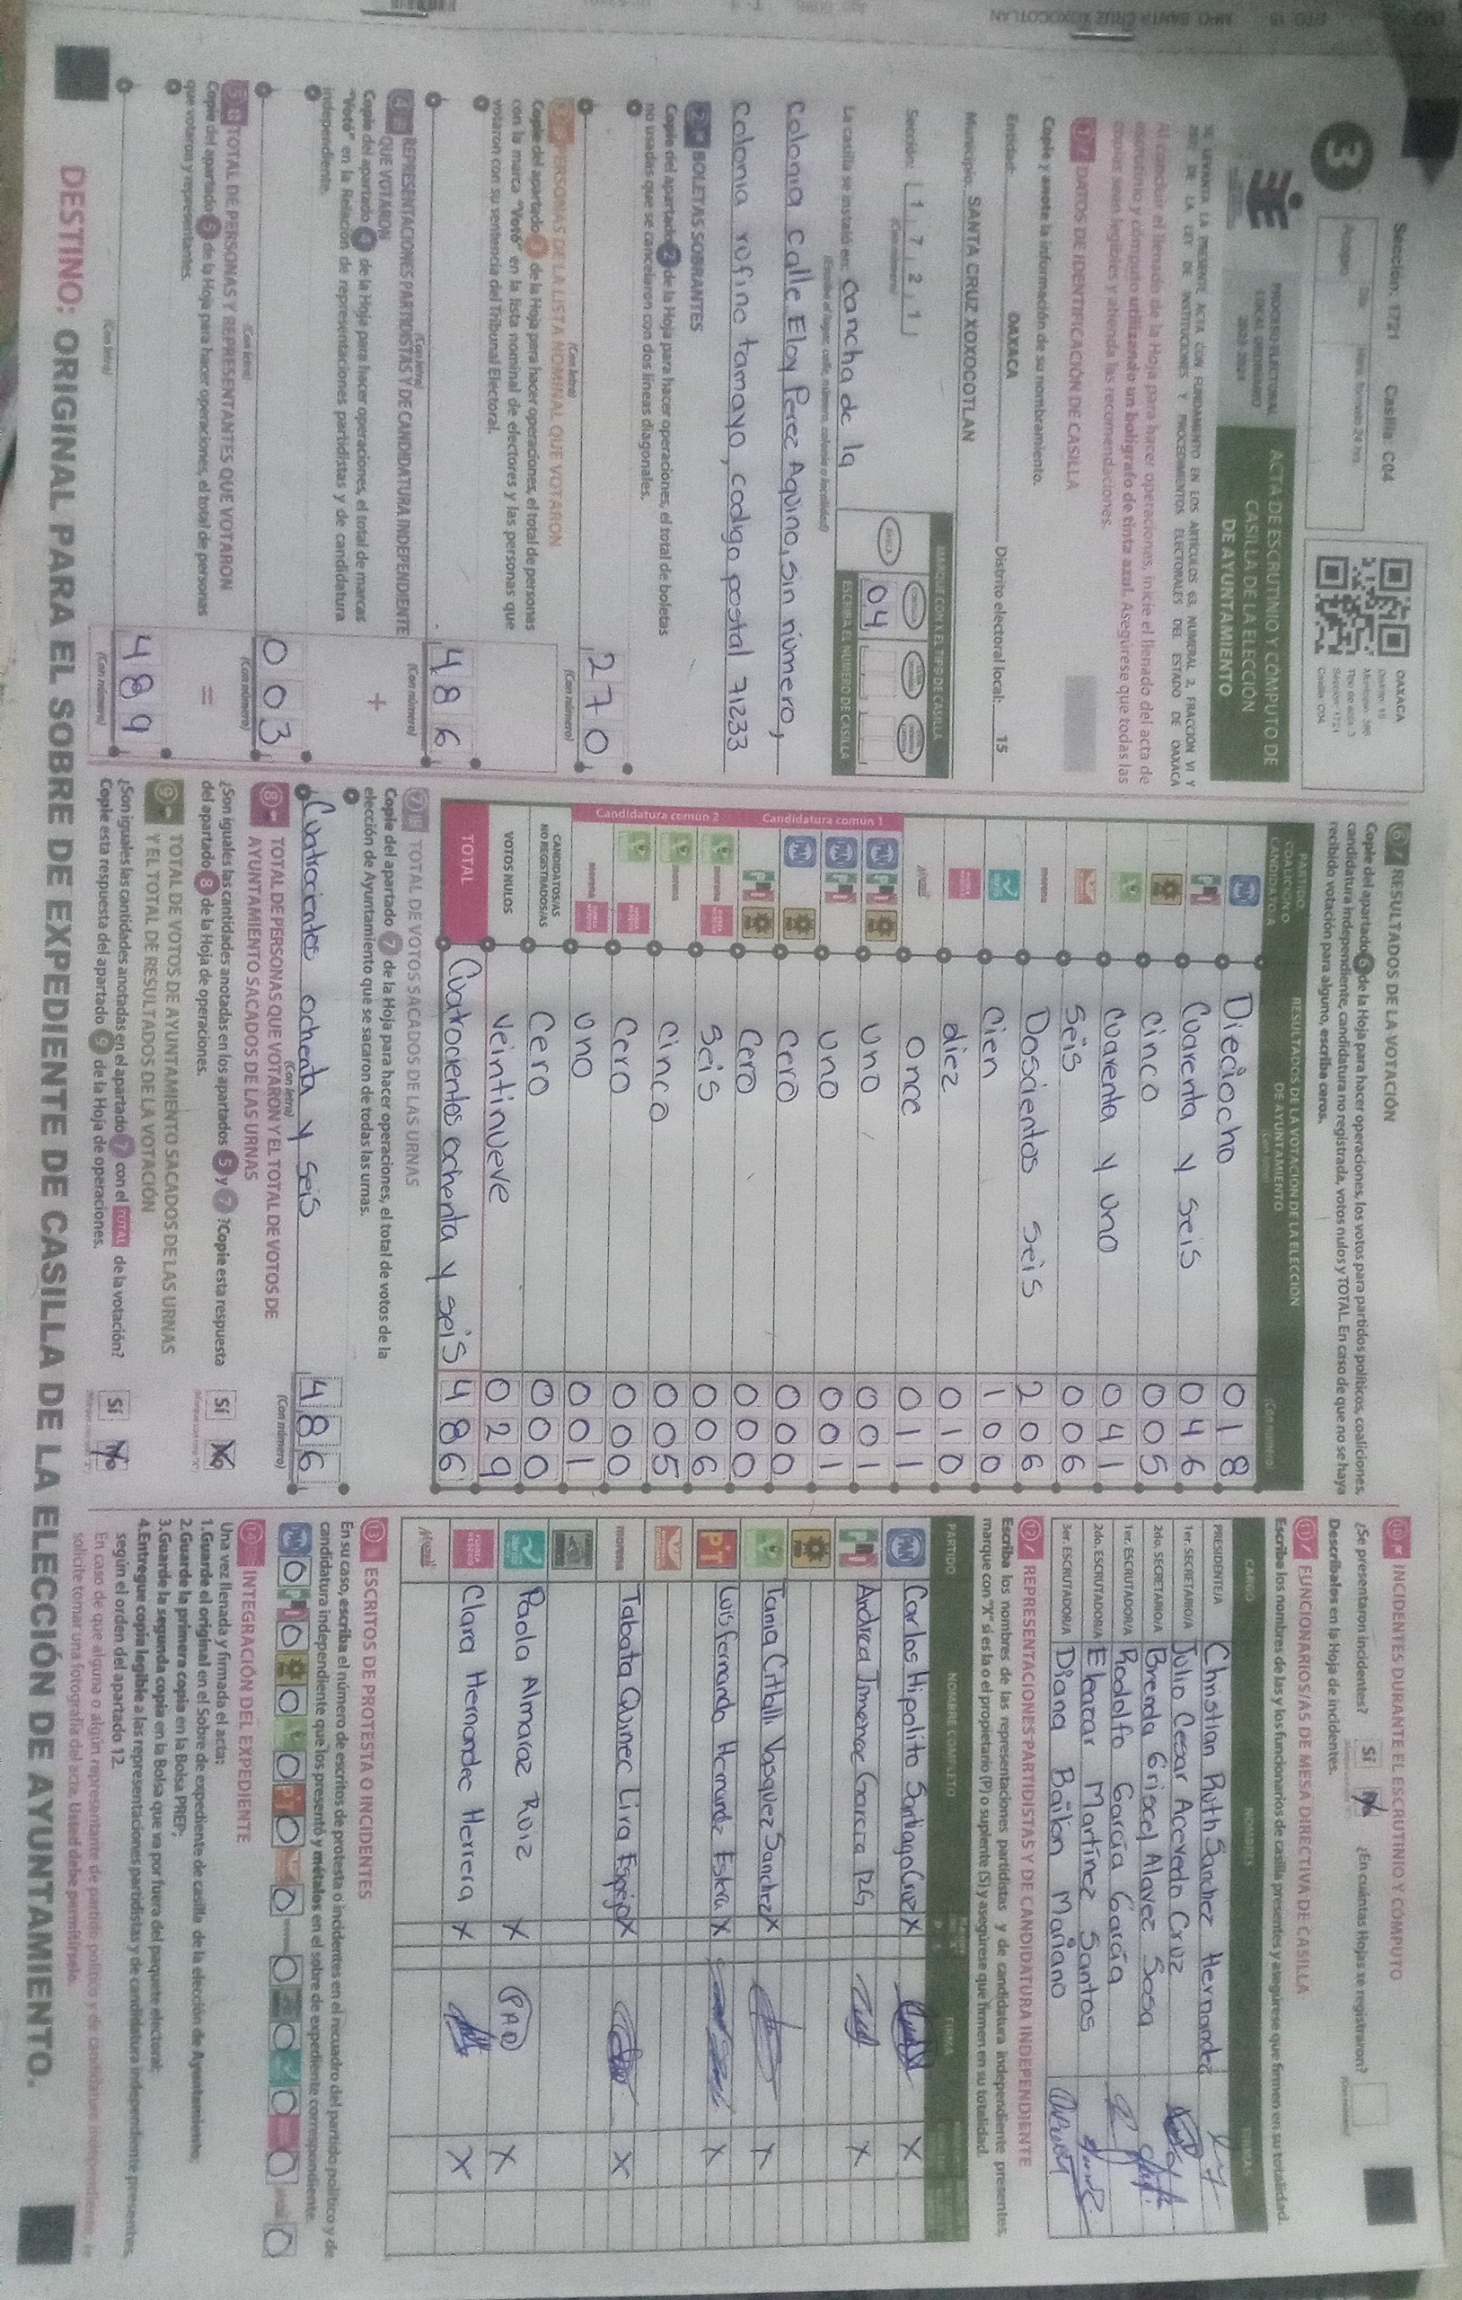 Sección: 1721 Casilla: C04
3
PROCESO ELECTORAL
LOCAL ORDINARIO
2023-2024
ACTA DE ESCRUTINIO Y CÓMPUTO DE
CASILLA DE LA ELECCIÓN
DE AYUNTAMIENTO
OAXACA
Sección: 1721
Casilla: C04
SE LEVANTA LA PRESENTE ACTA CON FUNDAMENTO EN LOS ARTÍCULOS 63, NUMERAL 2, FRACCIÓN VI Y
DE LA LEY DE INSTITUCIONES Y PROCEDIMIENTOS ELECTORALES DEL ESTADO DE OAXACA
Al concluir el llenado de la Hoja para hacer operaciones, inicie el llenado del acta de
escrutinio y cómputo utilizando un bolígrafo de tinta azul. Asegúrese que todas las
copias sean legibles y atienda las recomendaciones.
1 DATOS DE IDENTIFICACIÓN DE CASILLA
Copie y anote la información de su nombramiento.
Entidad: OAXACA Distrito electoral local: 15
Municipio: SANTA CRUZ XOXOCOTLAN
Sección: 1 7 2 1
(Con número)
MARQUE CON X EL TIPO DE CASILLA
ESCRIBA EL NÚMERO DE CASILLA
04
La casilla se instaló en: Cancha de la
(Escriba el lugar: calle, número, colonia o localidad)
Colonia Calle Eloy Perez Aquino, sin número,
Colonia rofino tamayo, codigo postal 71233
2 BOLETAS SOBRANTES
Copie del apartado 2 de la Hoja para hacer operaciones, el total de boletas
no usadas que se cancelaron con dos líneas diagonales.
270
(Con letra) (Con número)
3 PERSONAS DE LA LISTA NOMINAL QUE VOTARON
Copie del apartado 3 de la Hoja para hacer operaciones, el total de personas
con la marca "Votó" en la lista nominal de electores y las personas que
votaron con su sentencia del Tribunal Electoral.
486
(Con letra) (Con número)
4 REPRESENTACIONES PARTIDISTAS Y DE CANDIDATURA INDEPENDIENTE
QUE VOTARON
+
Copie del apartado 4 de la Hoja para hacer operaciones, el total de marcas
"Votó" en la Relación de representaciones partidistas y de candidatura
independiente.
003
(Con letra) (Con número)
5 TOTAL DE PERSONAS Y REPRESENTANTES QUE VOTARON
=
Copie del apartado 5 de la Hoja para hacer operaciones, el total de personas
que votaron y representantes.
489
(Con letra) (Con número)
6 RESULTADOS DE LA VOTACIÓN
Copie del apartado 6 de la Hoja para hacer operaciones, los votos para partidos políticos, coaliciones,
candidatura independiente, candidatura no registrada, votos nulos y TOTAL. En caso de que no se haya
recibido votación para alguno, escriba ceros.
PARTIDO,
COALICIÓN O
CANDIDATO/A
RESULTADOS DE LA VOTACIÓN DE LA ELECCIÓN
DE AYUNTAMIENTO
(Con letra) (Con número)
PAN Dieciocho 018
PRI Cuarenta y seis 046
PRD Cinco 005
Cuarenta y uno 041
Seis 006
morena Doscientos seis 206
Cien 100
diez 010
once 011
Candidatura común 1
PRI uno 001
PAN PRI uno 001
PAN cero 000
PRI Cero 000
Candidatura común 2
morena Seis 006
morena Cinco 005
Cero 000
morena uno 001
CANDIDATOS/AS
NO REGISTRADOS/AS Cero 000
VOTOS NULOS Veintinueve 029
TOTAL Cuatrocientos ochenta y seis 486
7 TOTAL DE VOTOS SACADOS DE LAS URNAS
Copie del apartado 7 de la Hoja para hacer operaciones, el total de votos de la
elección de Ayuntamiento que se sacaron de todas las urnas.
Cuatrocientos ochenta y seis 486
(Con letra) (Con número)
8 TOTAL DE PERSONAS QUE VOTARON Y EL TOTAL DE VOTOS DE
AYUNTAMIENTO SACADOS DE LAS URNAS
¿Son iguales las cantidades anotadas en los apartados 5 y 7 ?Copie esta respuesta
del apartado 8 de la Hoja de operaciones.
Sí No
9 TOTAL DE VOTOS DE AYUNTAMIENTO SACADOS DE LAS URNAS
Y EL TOTAL DE RESULTADOS DE LA VOTACIÓN
¿Son iguales las cantidades anotadas en el apartado 7 con el TOTAL de la votación?
Copie esta respuesta del apartado 9 de la Hoja de operaciones.
Sí No
10 INCIDENTES DURANTE EL ESCRUTINIO Y CÓMPUTO
¿Se presentaron incidentes? Sí No ¿En cuántas Hojas se registraron?
Descríbalos en la Hoja de incidentes.
11 FUNCIONARIOS/AS DE MESA DIRECTIVA DE CASILLA
Escriba los nombres de las y los funcionarios de casilla presentes y asegúrese que firmen en su totalidad.
CARGO NOMBRES FIRMAS
PRESIDENTE/A Christian Ruth Sanchez Hernandez
1er. SECRETARIO/A Julio Cesar Acevedo Cruz
2do. SECRETARIO/A Brenda Grisel Alavez Sosa
1er. ESCRUTADOR/A Rodolfo García García
2do. ESCRUTADOR/A Eleazar Martínez Santos
3er. ESCRUTADOR/A Diana Bailon Mariano
12 REPRESENTACIONES PARTIDISTAS Y DE CANDIDATURA INDEPENDIENTE
Escriba los nombres de las representaciones partidistas y de candidatura independiente presentes;
marque con "X" si es la o el propietario (P) o suplente (S) y asegúrese que firmen en su totalidad.
PARTIDO NOMBRE COMPLETO FIRMA
PAN Carlos Hipolito Santiago Cruz X X
PRI Andrea Jimenez Garcia X
Tania Citlalli Vasquez Sanchez X X
PT Luis fernando Hernandez X X
morena Tabata Quinec Lira Espejo X X
Paola Almaraz Ruiz X X
Clara Hernandez Herrera X X
13 ESCRITOS DE PROTESTA O INCIDENTES
En su caso, escriba el número de escritos de protesta o incidentes en el recuadro del partido político y de
candidatura independiente que los presentó y métalos en el sobre de expediente correspondiente.
PAN 0 PRI 0 0 0 PT 0 0 0 0 0 0 0
14 INTEGRACIÓN DEL EXPEDIENTE
Una vez llenada y firmada el acta:
1.Guarde el original en el Sobre de expediente de casilla de la elección de Ayuntamiento;
2.Guarde la primera copia en la Bolsa PREP;
3.Guarde la segunda copia en la Bolsa que va por fuera del paquete electoral;
4.Entregue copia legible a las representaciones partidistas y de candidatura independiente presentes,
según el orden del apartado 12.
En caso de que alguna o algún representante de partido político y de candidatura independiente, le
solicite tomar una fotografía del acta. Usted debe permitírselo.
DESTINO: ORIGINAL PARA EL SOBRE DE EXPEDIENTE DE CASILLA DE LA ELECCIÓN DE AYUNTAMIENTO.